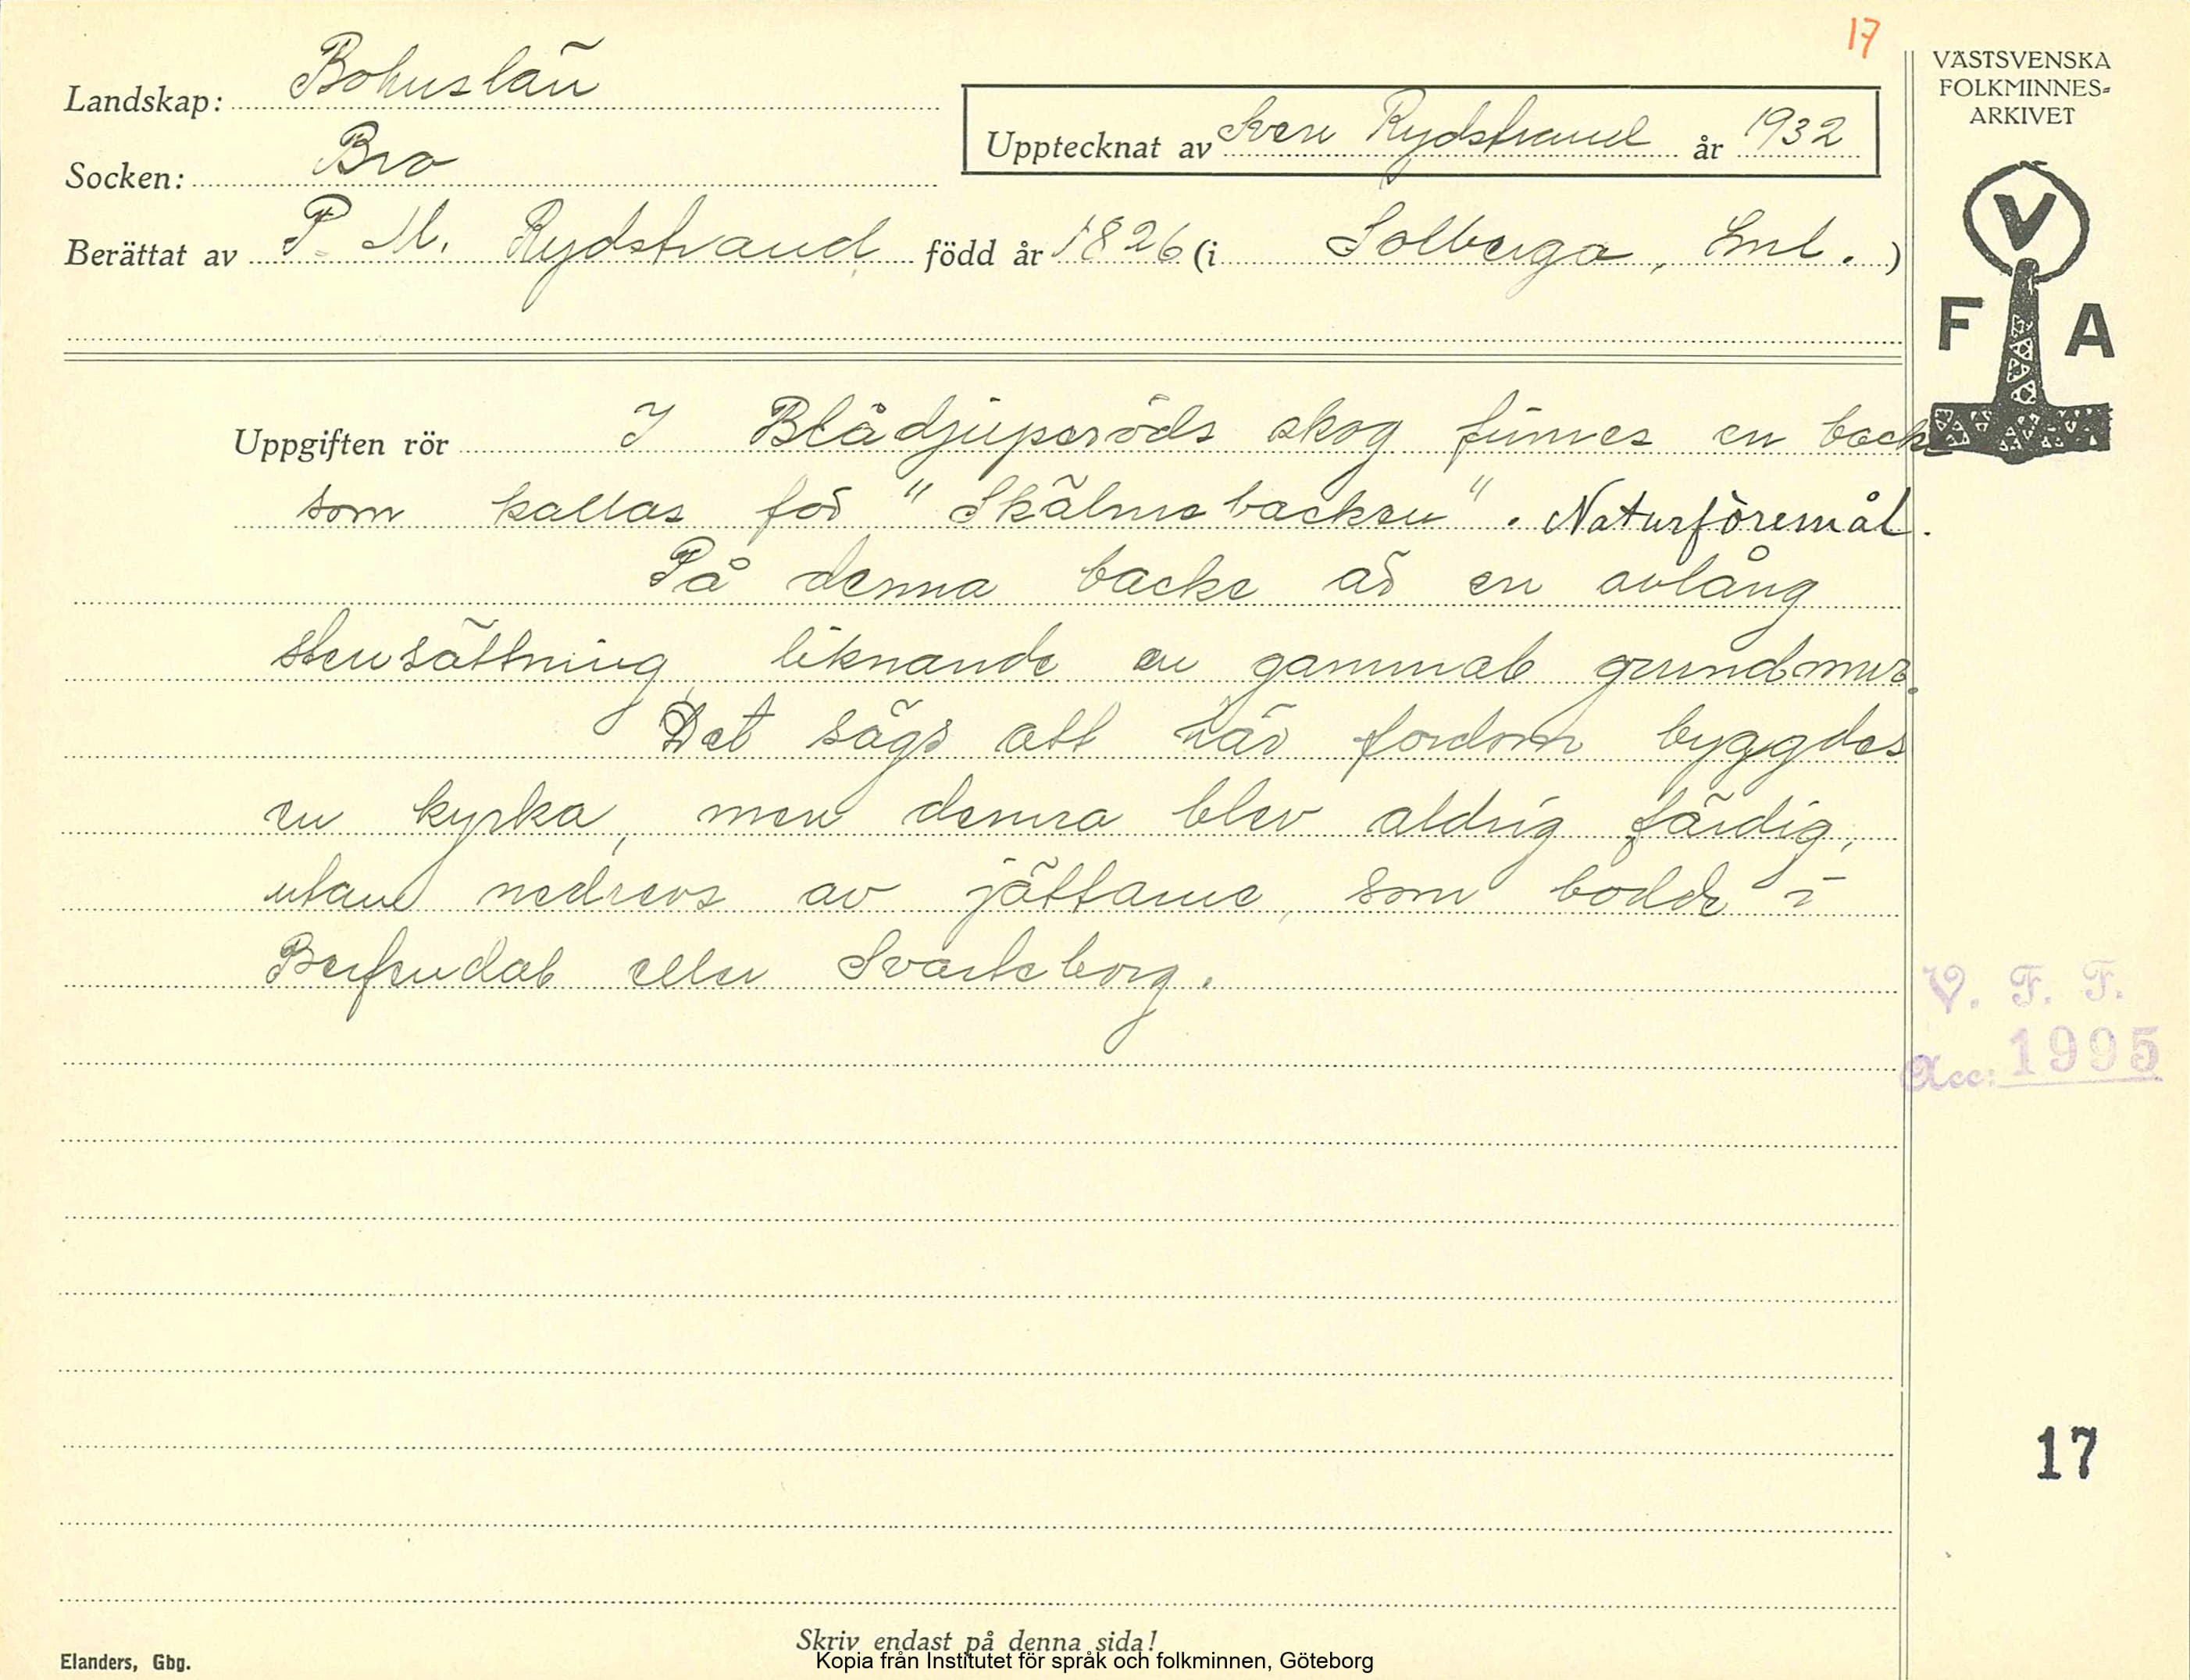 17
VÄSTSVENSKA
FOLKMINNES=
ARKIVET
Landskap: Bohuslän
Upptecknat av Sven Rydstrand år 1932
Socken: Bro
Berättat av P. M. Rydstrand född år 1826 (i Solberga, Sml. )
V
F A
Uppgiften rör I Blådjupsröds skog finnes en backe
som kallas för "Skälmebacken". Naturföremål.
På denna backe är en avlång
stensättning, liknande en gammal grundmur.
Det sägs att här fordom byggdes
en kyrka, men denna blev aldrig färdig,
utan nedrevs av jättarne, som bodde i
Berfendal eller Svarteborg.
V. F. F.
Acc: 1995
17
Skriv endast på denna sida!
Elanders, Gbg.
Kopia från Institutet för språk och folkminnen, Göteborg